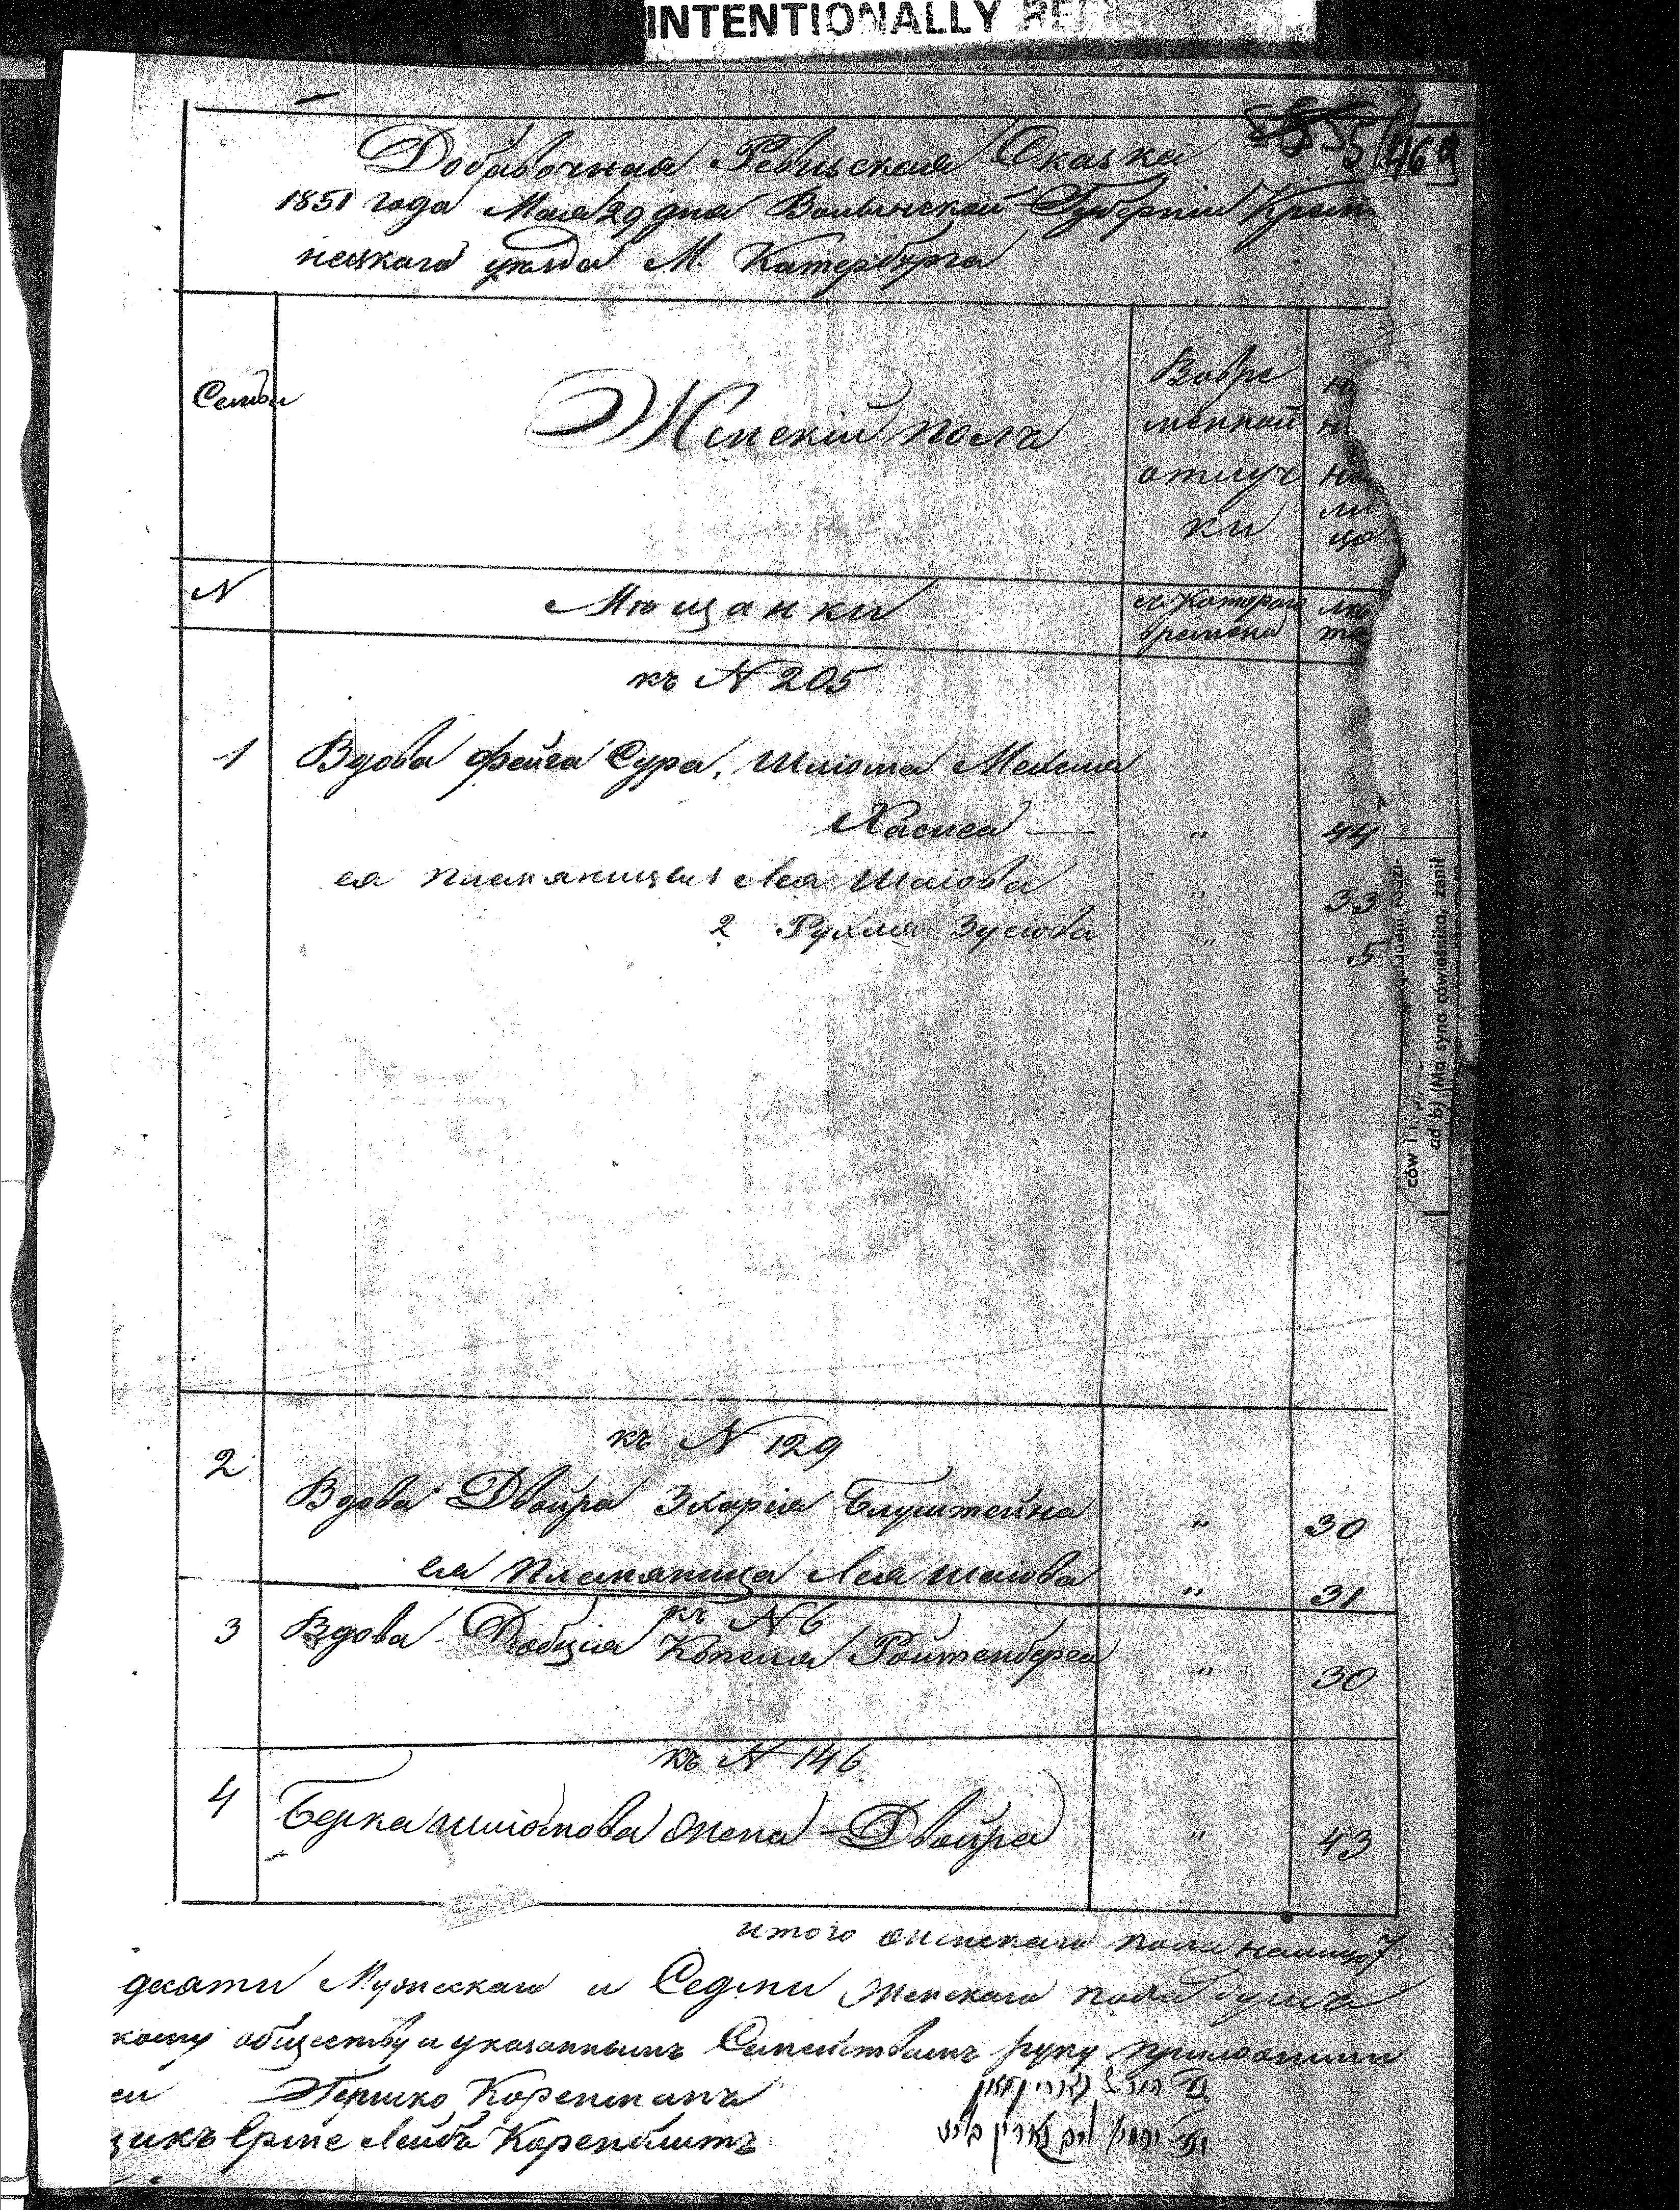 INTENTIONALLY
Добавочная Ревизская Сказка
1851 года Мая 29 дня Волынской Губерніи Креме
нецкаго уезда М. Катербурга
Семьи
Женскій полъ
Вовре
менной
отлуч
ки
на
ли
цо
N
Мѣщанки
съ котораго
времени
лѣ
та
къ N 205
1 Вдова Фейга Сура, Шліома Мекеля
Хасиса — " 44
ея племяницы 1 Лея Шаіова " 33
2 Рухля Зусіова " 5
къ N 129
2
Вдова Двойра Зхаріа Блуштейна " 30
ея племяница Лея Шаіова " 31
къ N 6
3 Вдова Добція Копеля Ройтенберга " 30
къ N 146
4 Берка Шліомова жена Двойра " 43
итого женскаго пола налицо 7
дсяти Мужескаго и Седми Женскаго пола душъ
кому обществу и указаннымъ Семействамъ руку приложили
Гершко Коренманъ
щикъ Срие Лейба Коренблитъ
ców
ad b) (Ma syna rówieśnika, żanił